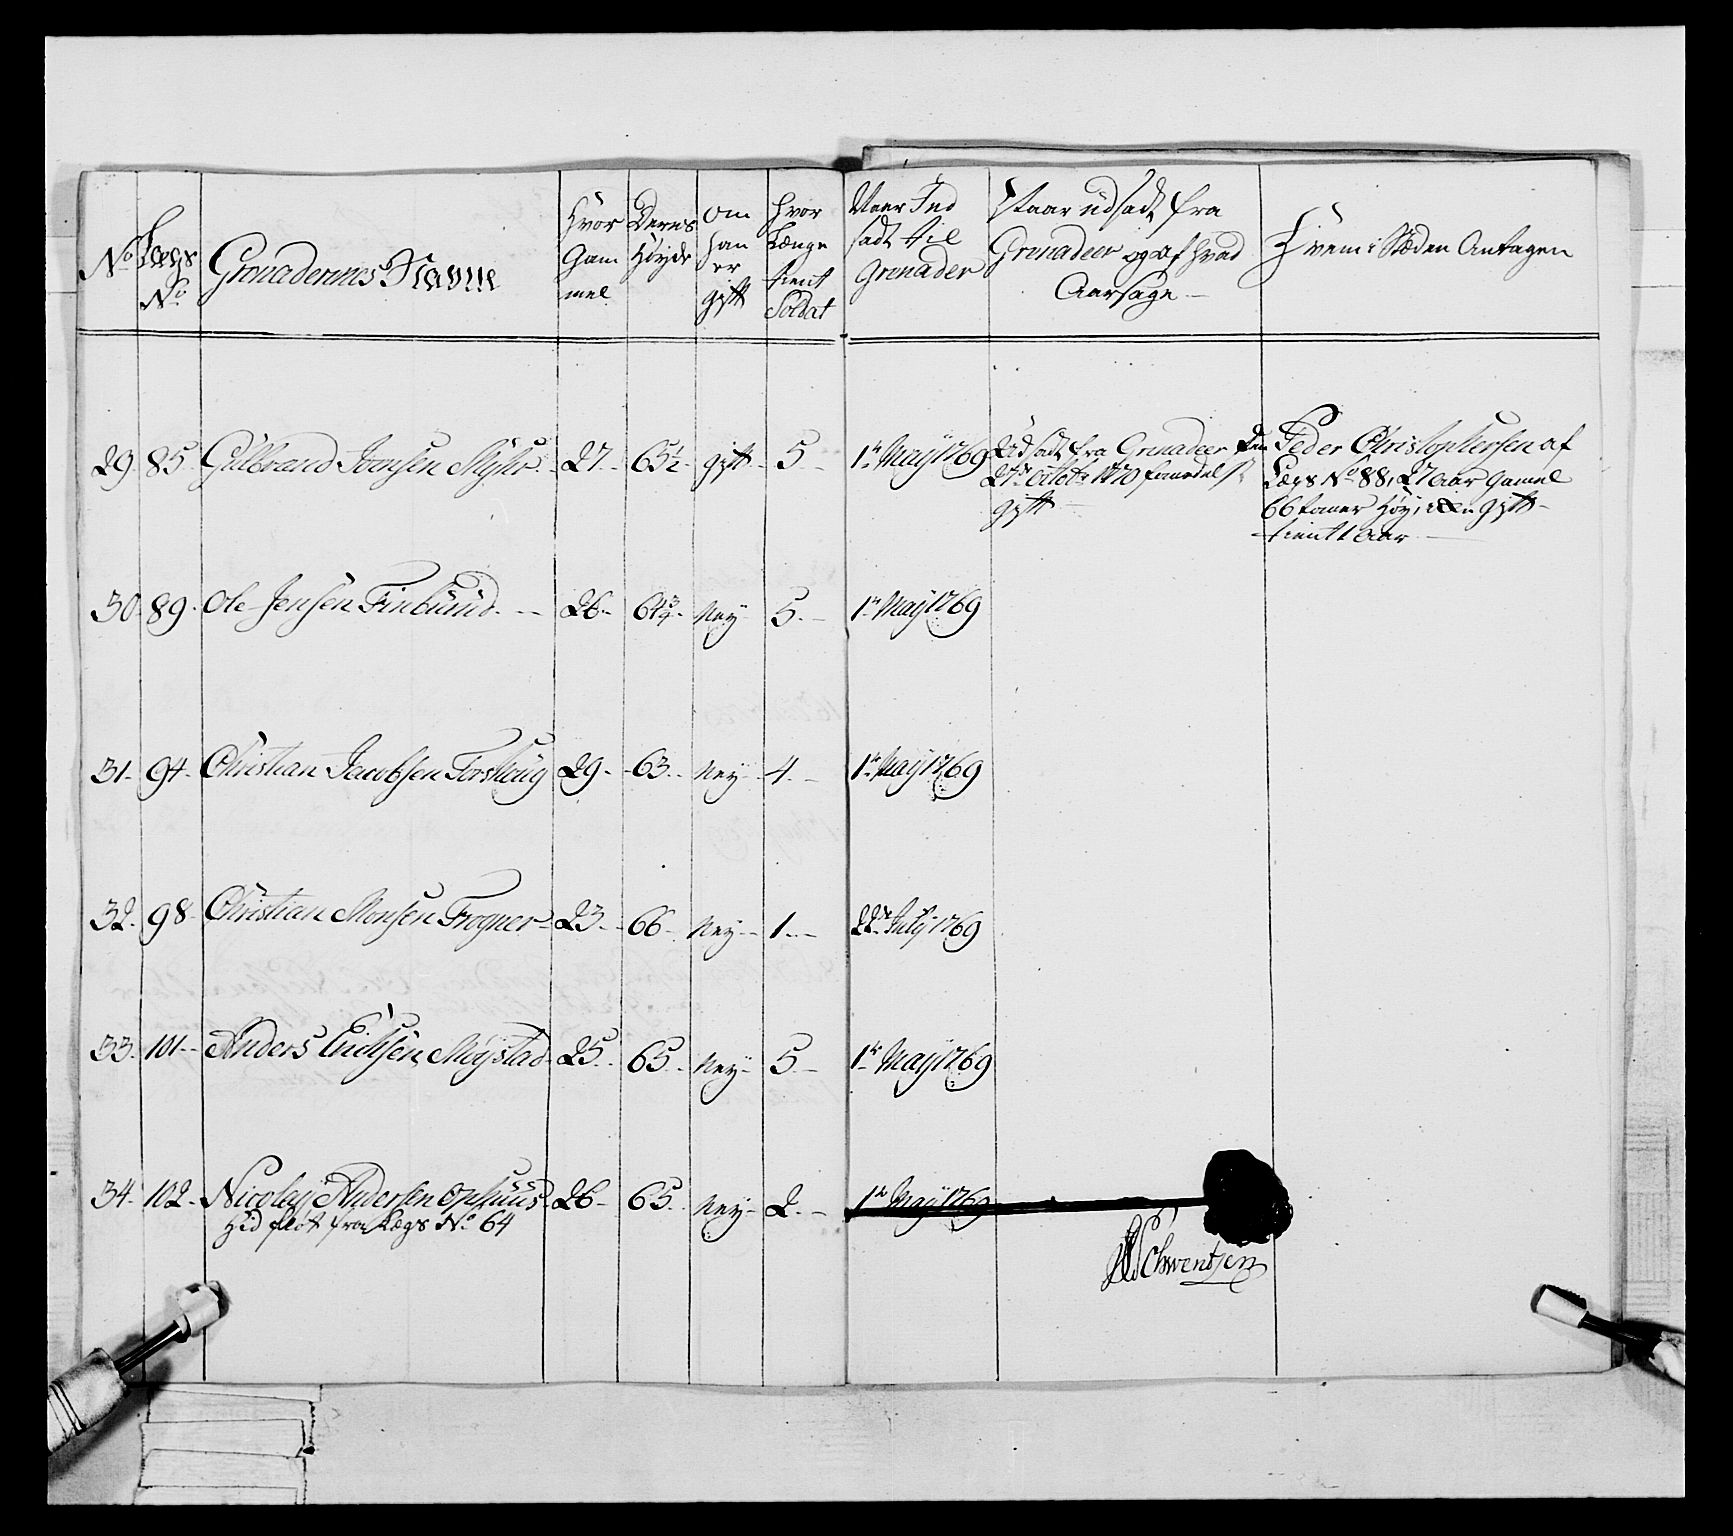 No
Lægs No
Grenaderenes Navne
Hvor Gam mel
Deres Høyde
Om han er gift
hvor Længe tient Soldat
Naar Ind sadt til Grenader
Naar udsadt fra Grenadeer og af hvad Aarsage
Hvem i Stæden Antagen
29. 85. Gulbrand Joensen Myhr 27. 65½ gift 5 1te Maÿ 1769 Udsadt fra Grenadeer den
27de Octobr 1770 formedelst
gift
Peder Christophersen af
Lægs No 88, 27 aar gamel
66 tomer høy, gift
tient 1 aar
30. 89. Ole Jensen Finlund 26. 64¾ Neÿ 5. 1te Maÿ 1769
31. 94. Christian Jacobsen Torshoug 29. 63. Neÿ 4. 1te Maÿ 1769
32. 98. Christian Monsen Frogner 23. 66 Neÿ 1. 22de Julÿ 1769
33. 101. Anders Erichsen Møÿstad 25. 65. Neÿ 5. 1te Maÿ 1769
34. 102. Nicolaÿ Andersen Ophuus 26 65. Neÿ 2. 1te Maÿ 1769
Hid fløt fra Lægs No 64
Schwentzen